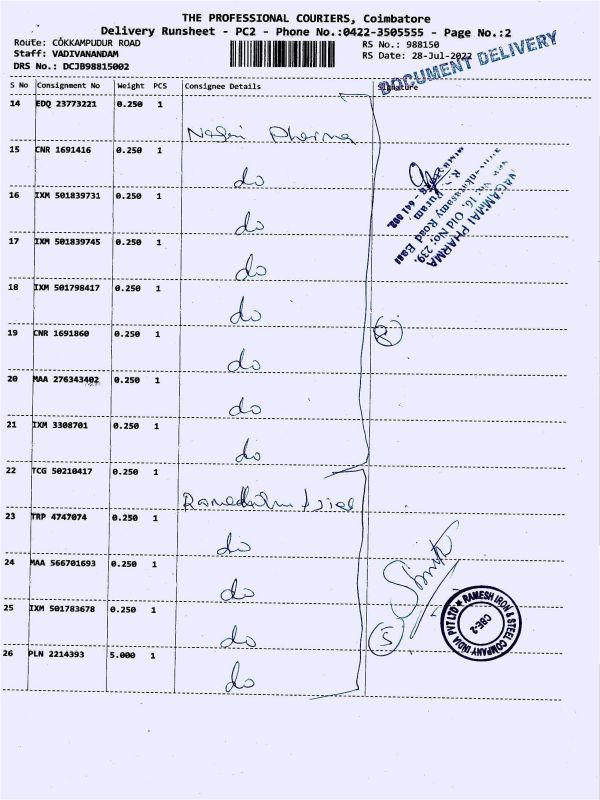 THE PROFESSIONAL COURIERS, Coimbatore
Delivery Runsheet - PC2 - Phone No.:0422-3505555 - Page No.:2
Route: COKKAMPUDUR ROAD RS No.: 988150
Staff: VADIVANANDAM RS Date: 28-Jul-2022
DRS No.: DCJB98815002
DOCUMENT DELIVERY
S No Consignment No Weight PCS Consignee Details Signature
14 EDQ 23773221 0.250 1
Pharma
15 CNR 1691416 0.250 1
do
16 IXM 501839731 0.250 1
do
17 IXM 501839745 0.250 1
do
18 IXM 501798417 0.250 1
do
19 CNR 1691860 0.250 1
do
20 MAA 276343402 0.250 1
do
21 IXM 3308701 0.250 1
do
22 TCG 50210417 0.250 1
23 TRP 4747074 0.250 1
do
24 MAA 566701693 0.250 1
do
25 IXM 501783678 0.250 1
do
26 PLN 2214393 5.000 1
do
NAGAMMAI PHARMA
16, Old No: 239,
Road East
R.S. Puram
641 002.
8
5
RAMESH IRON & STEEL COMPANY INDIA PVT LTD
CBE-2